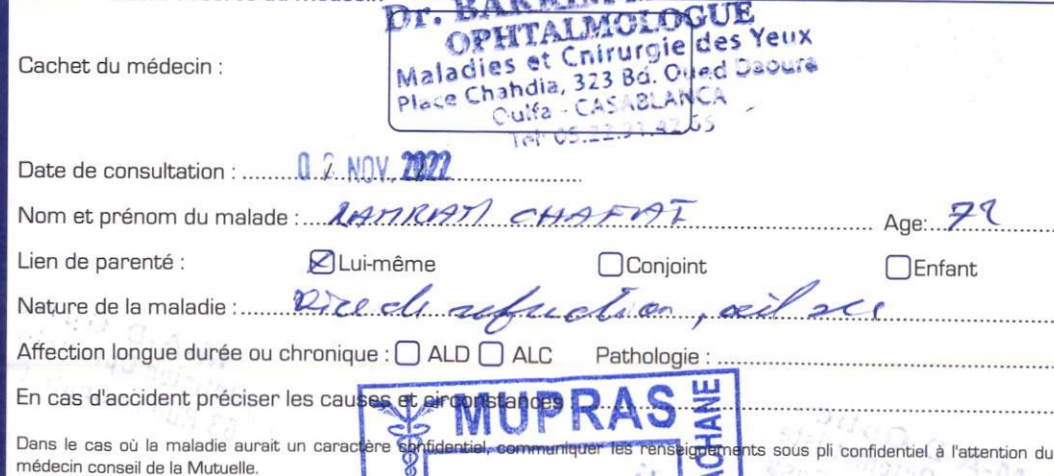 Dr.
OPHTALMOLOGUE
Maladies et Chirurgie des Yeux
Place Chahdia, 323 Bd. Oued Daoura
Oulfa - CASABLANCA
Cachet du médecin :
Date de consultation : 02 NOV. 2022
Nom et prénom du malade : CHAFAI Age: 72
Lien de parenté : Lui-même Conjoint Enfant
Nature de la maladie : de refraction, œil sec
Affection longue durée ou chronique : ALD ALC Pathologie :
En cas d'accident préciser les causes et circonstances :
MUPRAS
Dans le cas où la maladie aurait un caractère confidentiel, communiquer les renseignements sous pli confidentiel à l'attention du
médecin conseil de la Mutuelle.